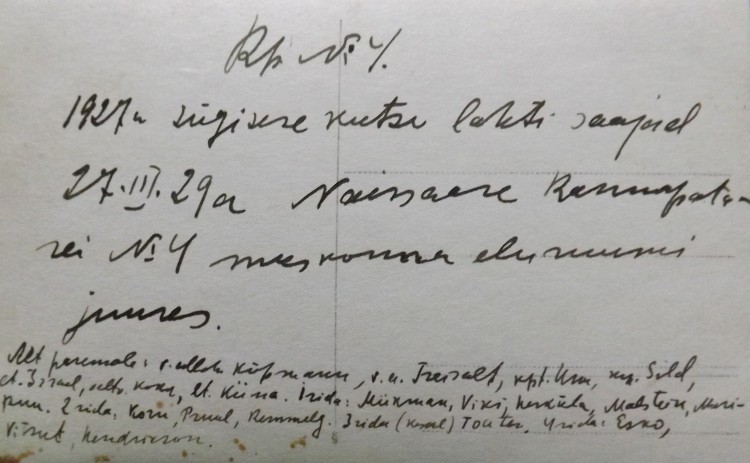 Rp. № 4.
1927a sügisese kutse lahti saajad
27.III.29a Naissaare Rannapata-
rei № 4 meeskonna eluruumi
juures.
Alt paremale: v.a. Treisalt, kpt. Urm, Sild,
lt. Iisrael, lt. Kiina. I rida: Mukman, Viki, Malstein, Mari-
puu. 2 rida: Korn, Pruul, Remmelg. 3 rida (keskel) Tonter. 4 rida: Esko,
Viirut, Hendrikson.